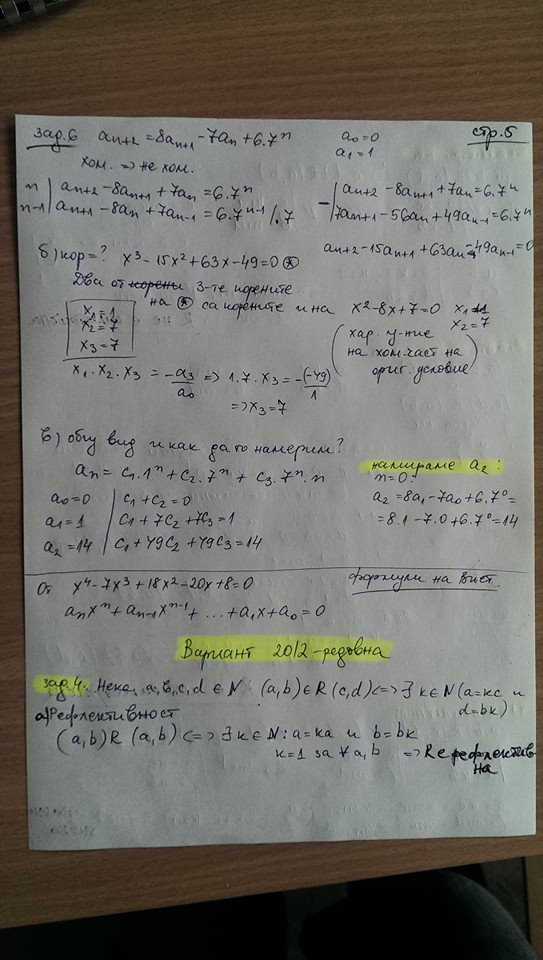 зад.6 an+2 = 8an+1 - 7an + 6.7^n a0=0 стр.5
a1=1
хом. => не хом.
n | an+2 - 8an+1 + 7an = 6.7^n
n-1 | an+1 - 8an + 7an-1 = 6.7^n-1 /.7
- | an+2 - 8an+1 + 7an = 6.7^n
7an+1 - 56an + 49an-1 = 6.7^n
an+2 - 15an+1 + 63an - 49an-1 = 0
б) кор = ? x³ - 15x² + 63x - 49 = 0 ⊛
Два от корени 3-те корените
на ⊛ са корените и на x² - 8x + 7 = 0 x1=1
x2=7
x1 = 1
x2 = 7
x3 = 7
(хар. у-ние
на хом. част на
ориг. условие)
x1 . x2 . x3 = -a3/a0 => 1.7.x3 = -(-49)/1
=> x3 = 7
в) общ вид и как да го намерим?
an = c1.1^n + c2.7^n + c3.7^n.n
a0=0 | c1 + c2 = 0
a1=1 | c1 + 7c2 + 7c3 = 1
a2=14 | c1 + 49c2 + 49c3 = 14
намираме a2:
n=0:
a2 = 8a1 - 7a0 + 6.7^0 =
= 8.1 - 7.0 + 6.7^0 = 14
От x⁴ - 7x³ + 18x² - 20x + 8 = 0 формули на Виет.
anx^n + an-1x^n-1 + ... + a1x + a0 = 0
Вариант 2012 - редовна
зад.4. Нека a,b,c,d ∈ N (a,b) ∈ R (c,d) <=> ∃ k ∈ N (a=kc и
d=bk)
a) Рефлективност
(a,b) R (a,b) <=> ∃ k ∈ N : a=ka и b=bk
k=1 за ∀ a,b => R е рефлектив
на